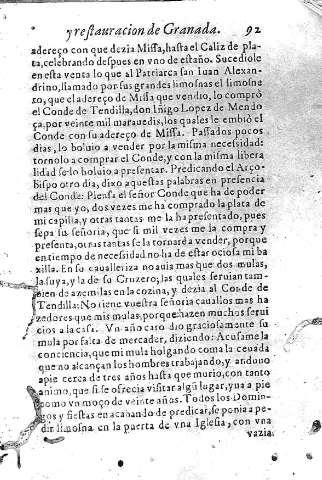 y restauracion de Granada. 92
adereço con que dezia Missa, hasta el Caliz de pla-
ta, celebrando despues en vno de estaño. Sucediole
en esta venta lo que al Patriarca san Iuan Alexan-
drino, llamado por sus grandes limosnas el limosne
ro, que el adereço de Missa que vendio, lo comprò
el Conde de Tendilla, don Iñigo Lopez de Mendo
ça, por veinte mil marauedis, los quales le embiò el
Conde con su adereço de Missa. Passados pocos
dias, lo boluio a vender por la misma necesidad:
tornolo a comprar el Conde, y con la misma libera
lidad se lo boluio a presentar. Predicando el Arço-
bispo otro dia, dixo aquestas palabras en presencia
del Conde: Piensa el señor Conde que ha de poder
mas que yo, dos vezes me ha comprado la plata de
mi capilla, y otras tantas me la ha presentado, pues
sepa su señoria, que si mil vezes me la compra y
presenta, otras tantas se la tornarè a vender, porque
en tiempo de necessidad no ha de estar ociosa mi ba
xilla. En su caualleriza no auia mas que dos mulas,
la suya, y la de su Cruzero, las quales seruian tam-
bien de azemilas en la cozina, y dezia al Conde de
Tendilla: No tiene vuestra señoria cauallos mas ha
zedores que mis mulas, porque hazen muchos serui
cios a la casa. Vn año caro dio graciosamente su
mula por falta de mercader, diziendo: Acusame la
conciencia, que mi mula holgando coma la ceuada
que no alcançan los hombres trabajando, y anduuo
a pie cerca de tres años hasta que murio, con tanto
animo, que si se ofrecia visitar algun lugar, yua a pie
como vn moço de veinte años. Todos los Domin-
gos y fiestas en acabando de predicar, se ponia a pe-
dir limosna en la puerta de vna Iglesia, con vna
vazia.